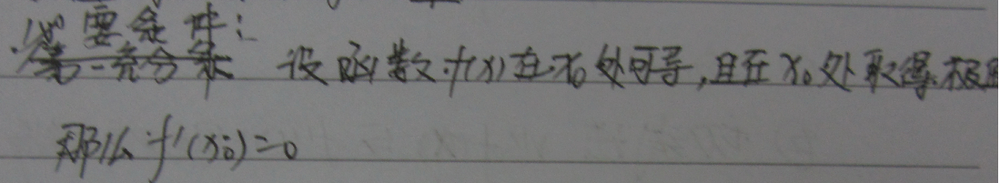 必要条件：
第一充分条 设函数f(x)在x₀处可导,且在x₀处取得极
那么f'(x₀)=0